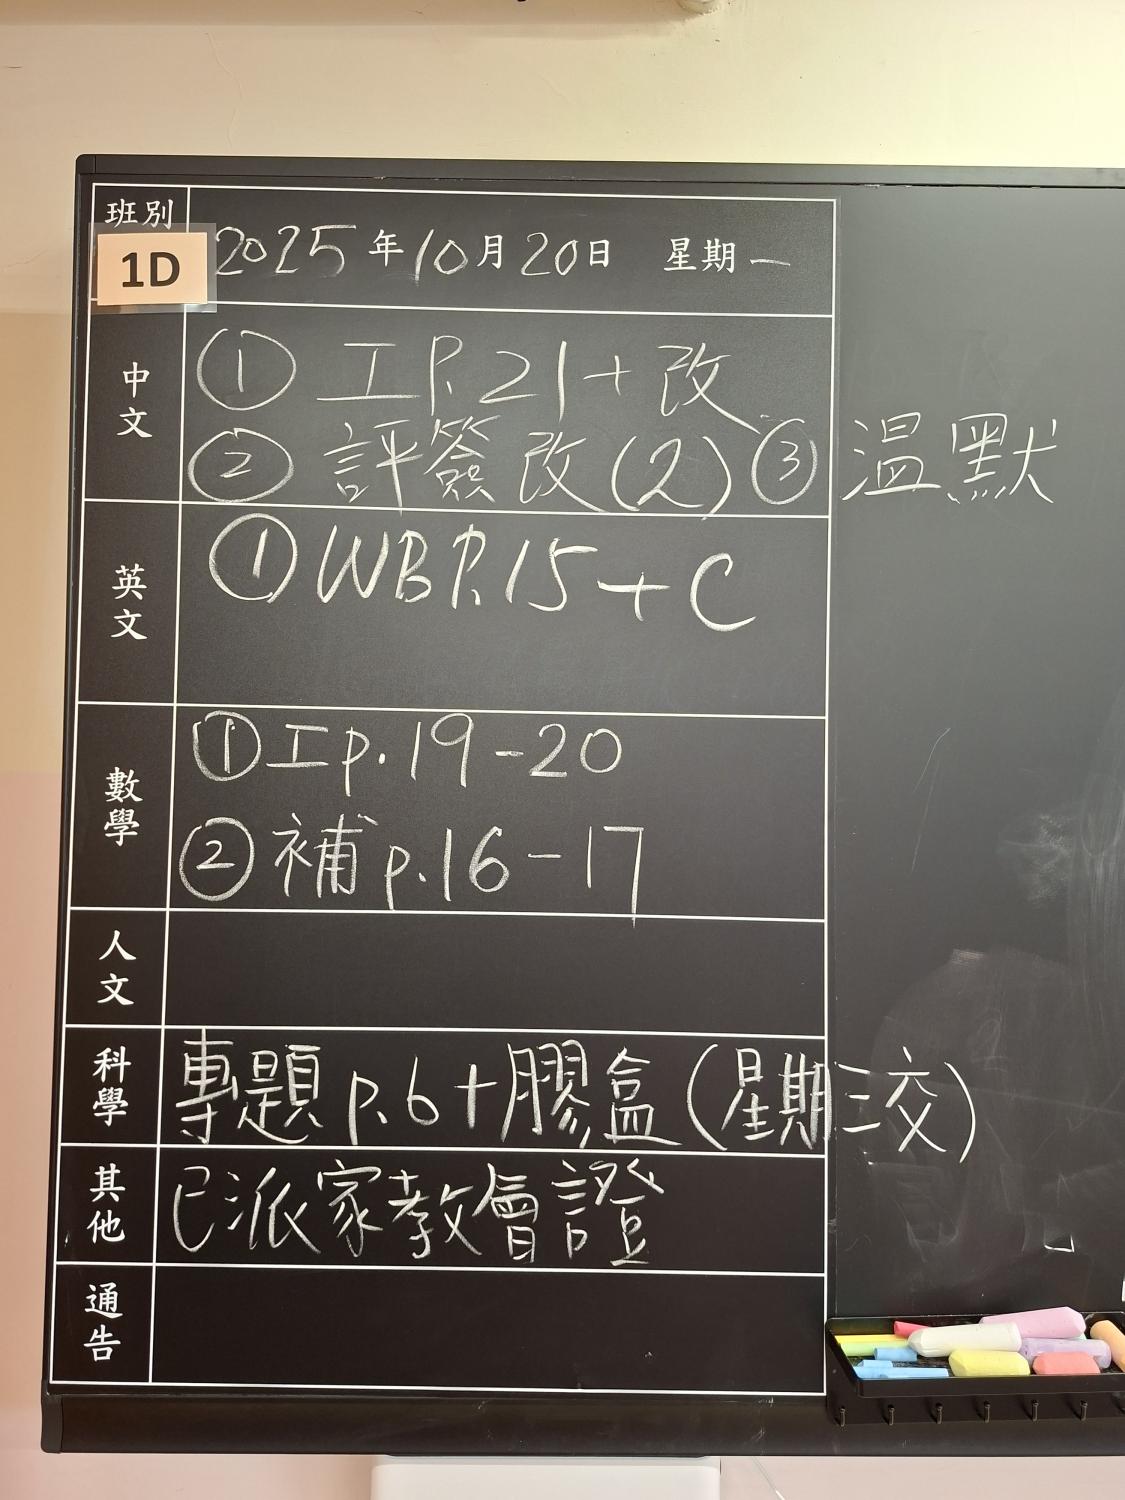 班別
1D
2025年10月20日 星期一
中文
① 工P.21+改
② 評簽改(2) ③ 溫默
英文
① WB P.15+C
數學
① 工p.19-20
② 補p.16-17
人文
科學
專題p.6+膠盒(星期三交)
其他
已派家教會證
通告